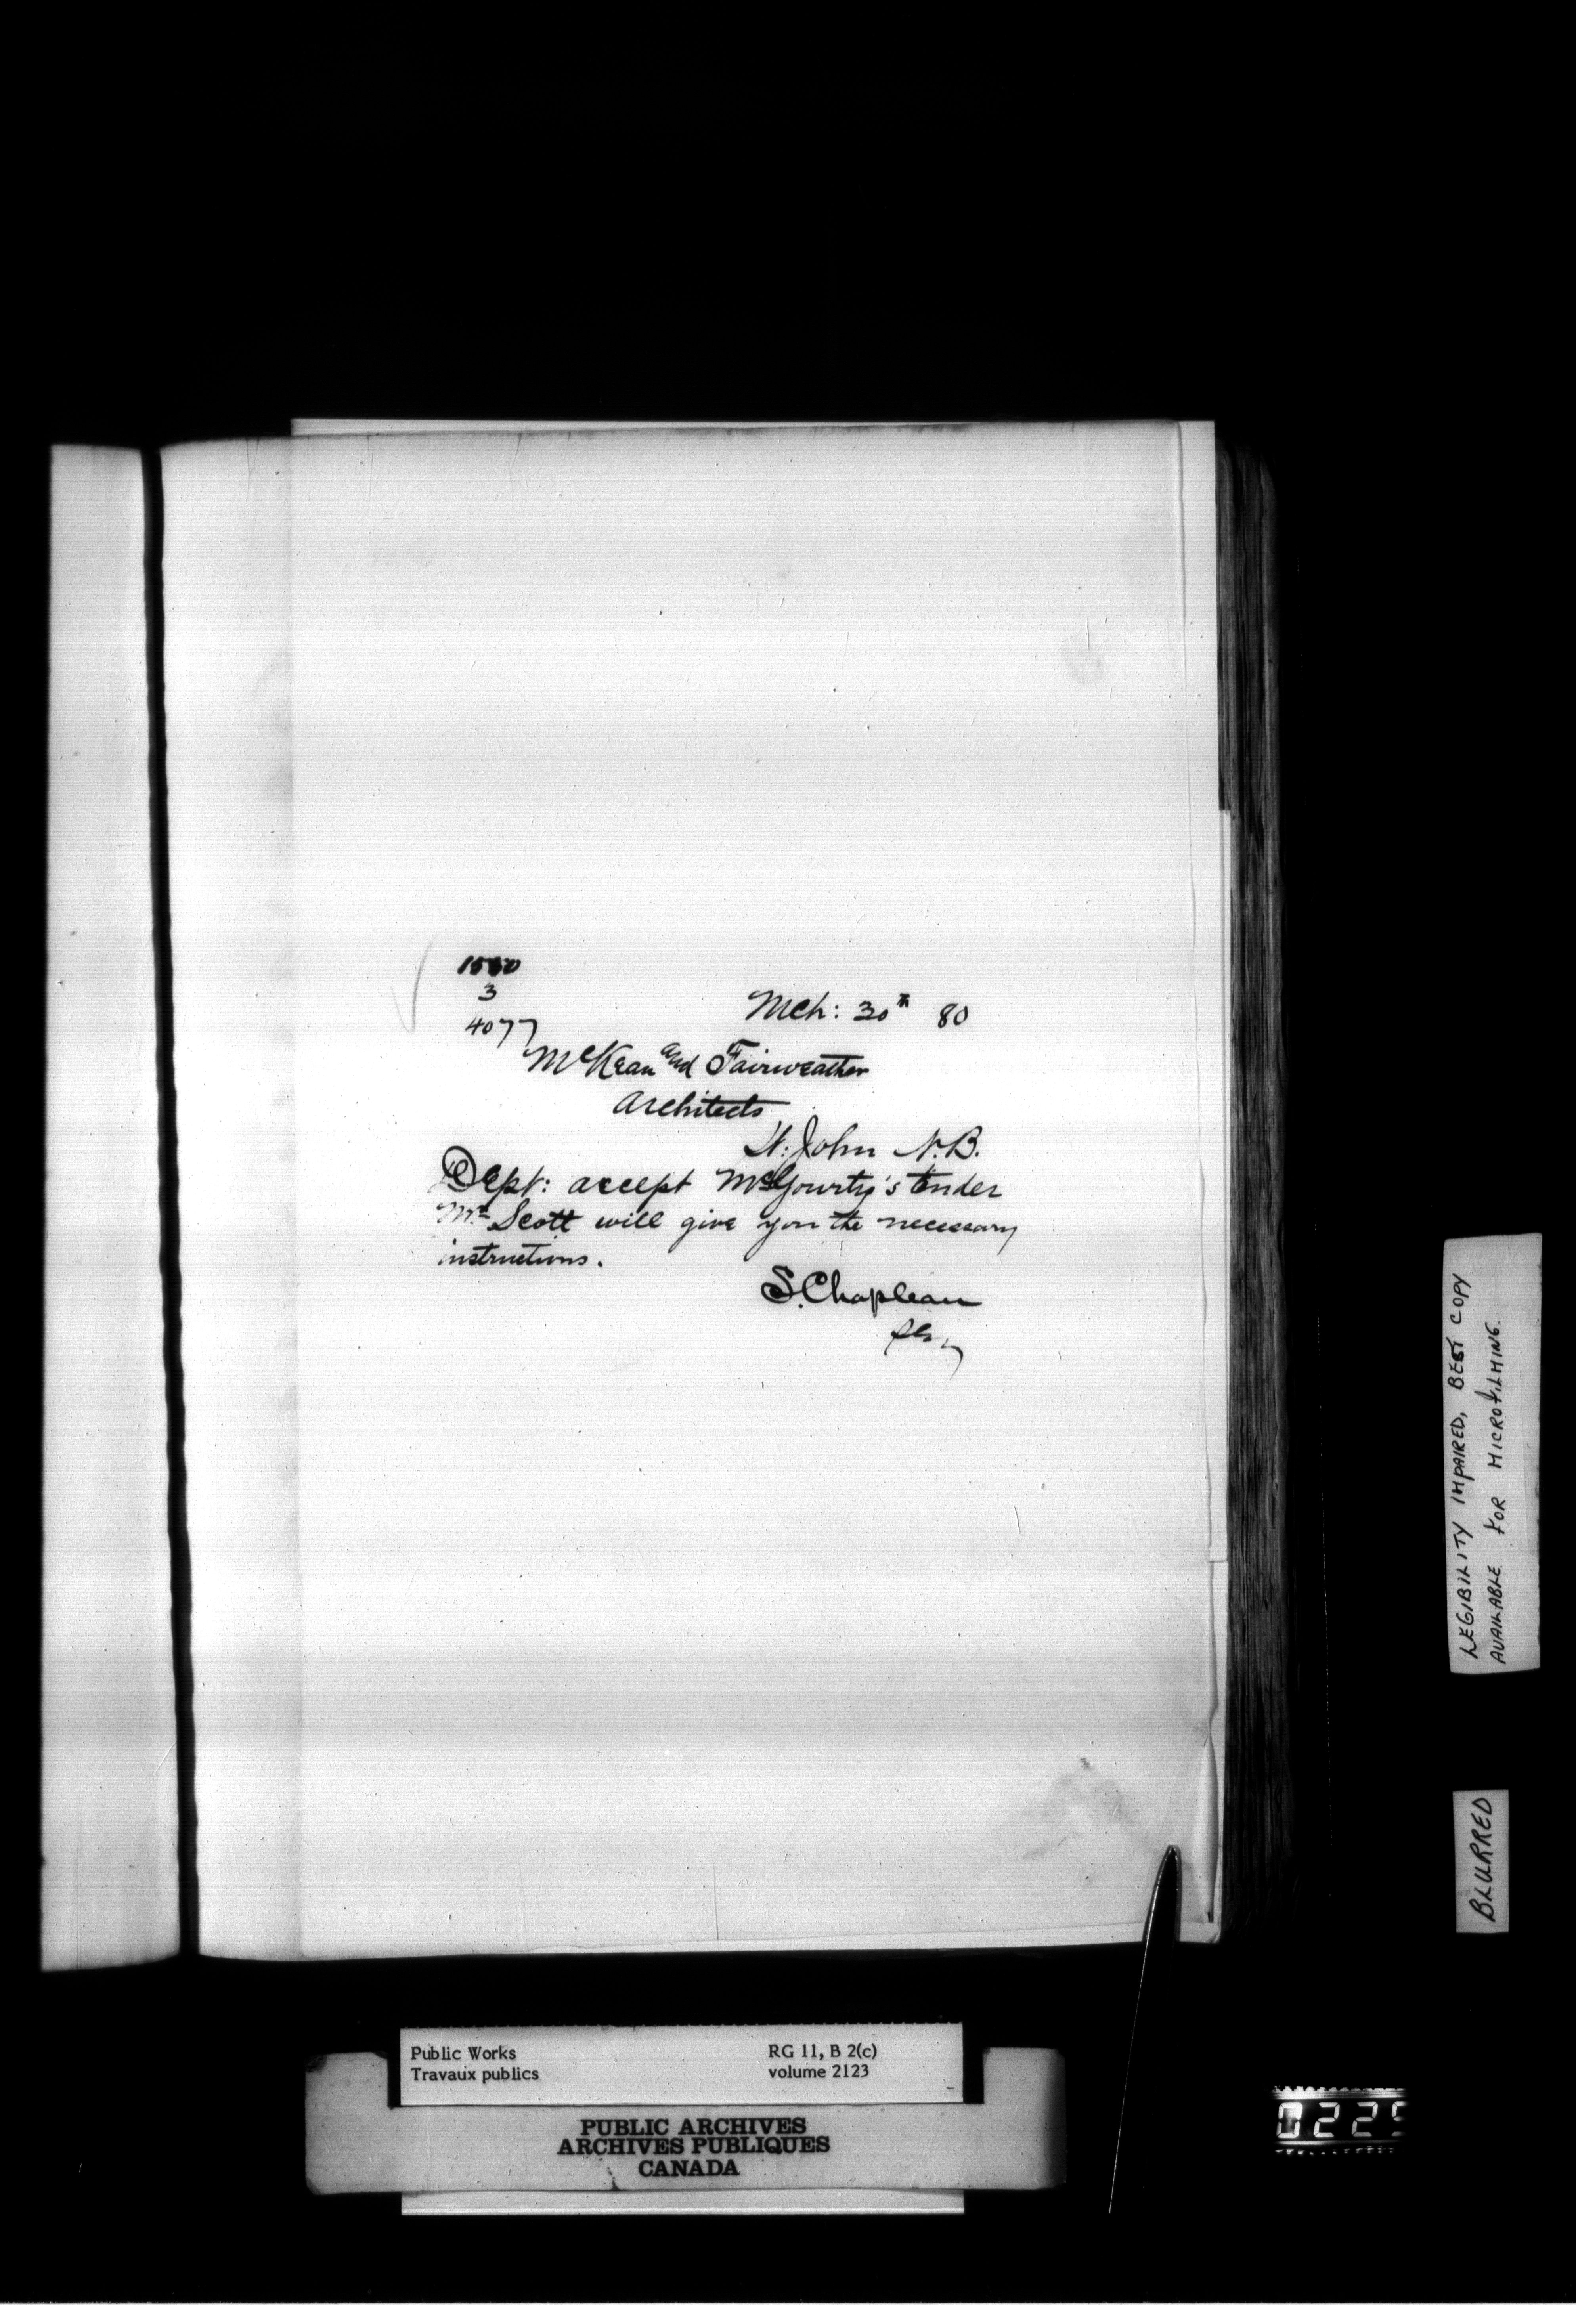 3
Mch: 30th 80
4077
McKean and Fairweather
Architects
St: John N.B.
Dept: accept McGourty's tender
Mr Scott will give you the necessary
instructions.
S. Chapleau
LEGIBILITY IMPAIRED, BEST COPY
AVAILABLE FOR MICROFILMING.
BLURRED
Public Works
Travaux publics
RG 11, B 2(c)
volume 2123
PUBLIC ARCHIVES
ARCHIVES PUBLIQUES
CANADA